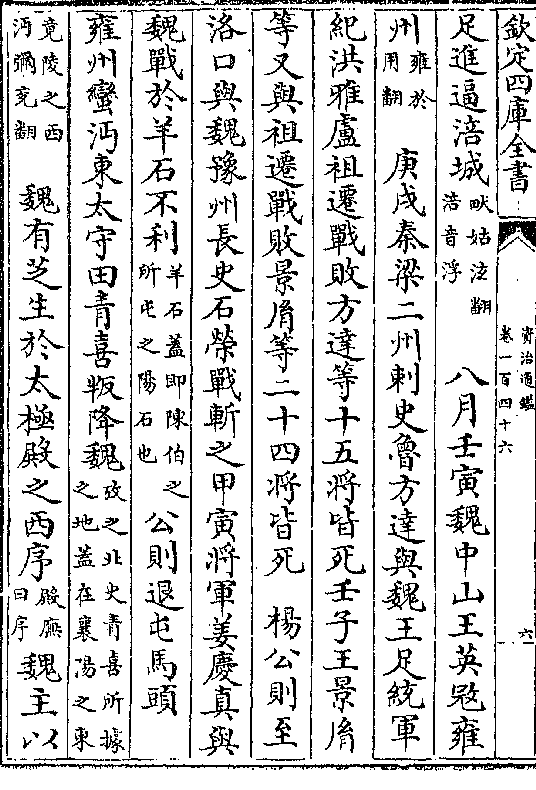 欽定四庫全書
資治通鑑
卷一百四十六
六
足進逼涪城畎姑泫翻涪音浮　八月壬寅魏中山王英宼雍
州雍於用翻　庚戌秦梁二州刺史魯方達與魏王足統軍
紀洪雅盧祖遷戰敗方達等十五將皆死壬子王景㣧
等又與祖遷戰敗景㣧等二十四將皆死　楊公則至
洛口與魏豫州長史石榮戰斬之甲寅將軍姜慶真與
魏戰於羊石不利羊石蓋即陳伯之所屯之陽石也　公則退屯馬頭
雍州蠻沔東太守田青喜叛降魏攷之北史青喜所據之地蓋在襄陽之東
竟陵之西沔彌兖翻　魏有芝生於太極殿之西序殿廡曰序魏主以